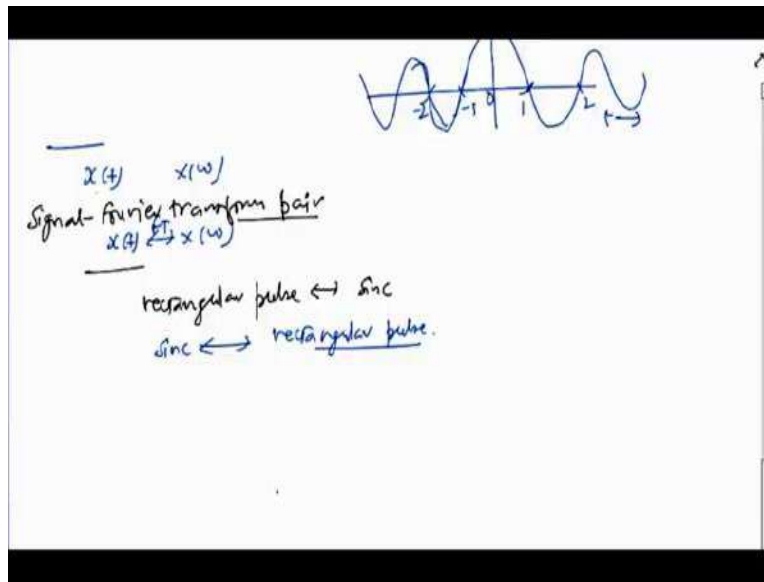 -2 -1 0 1 2
x(t) x(w)
Signal-Fourier transform pair
x(t) FT x(w)
rectangular pulse ↔ sinc
sinc ↔ rectangular pulse.